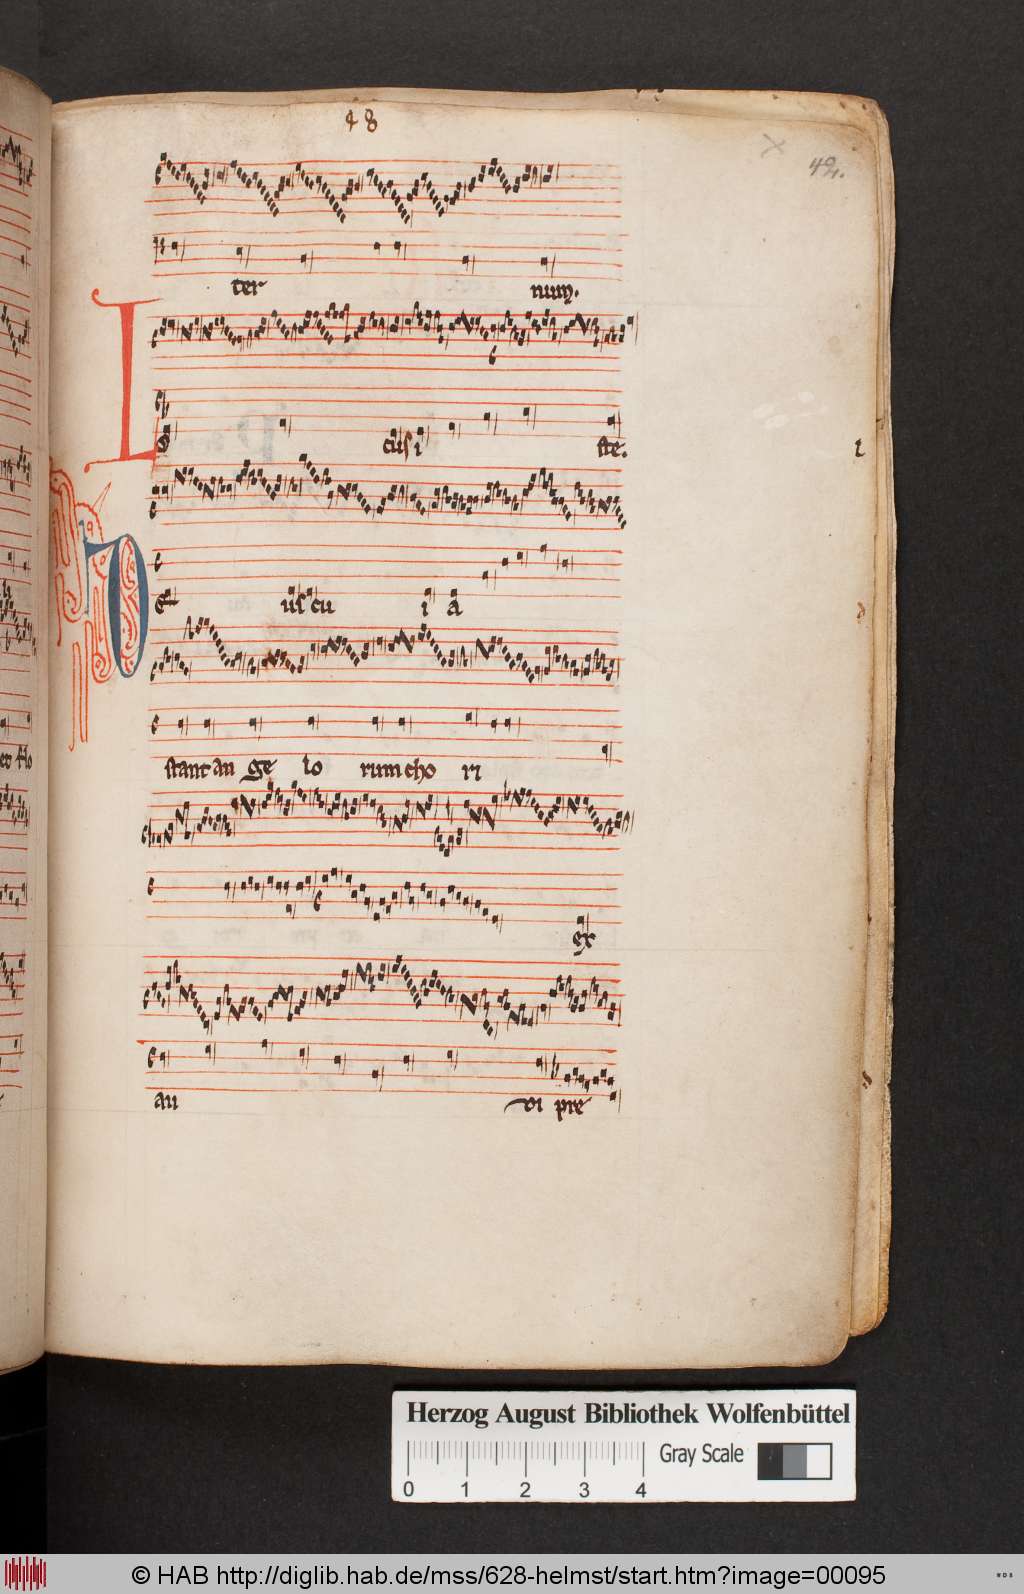 48
42.
ter num.
Locus iste.
l
De us cu i a
stant an ge lo rum cho ri
ex
au di pre
Herzog August Bibliothek Wolfenbüttel
Gray Scale
0 1 2 3 4
© HAB http://diglib.hab.de/mss/628-helmst/start.htm?image=00095